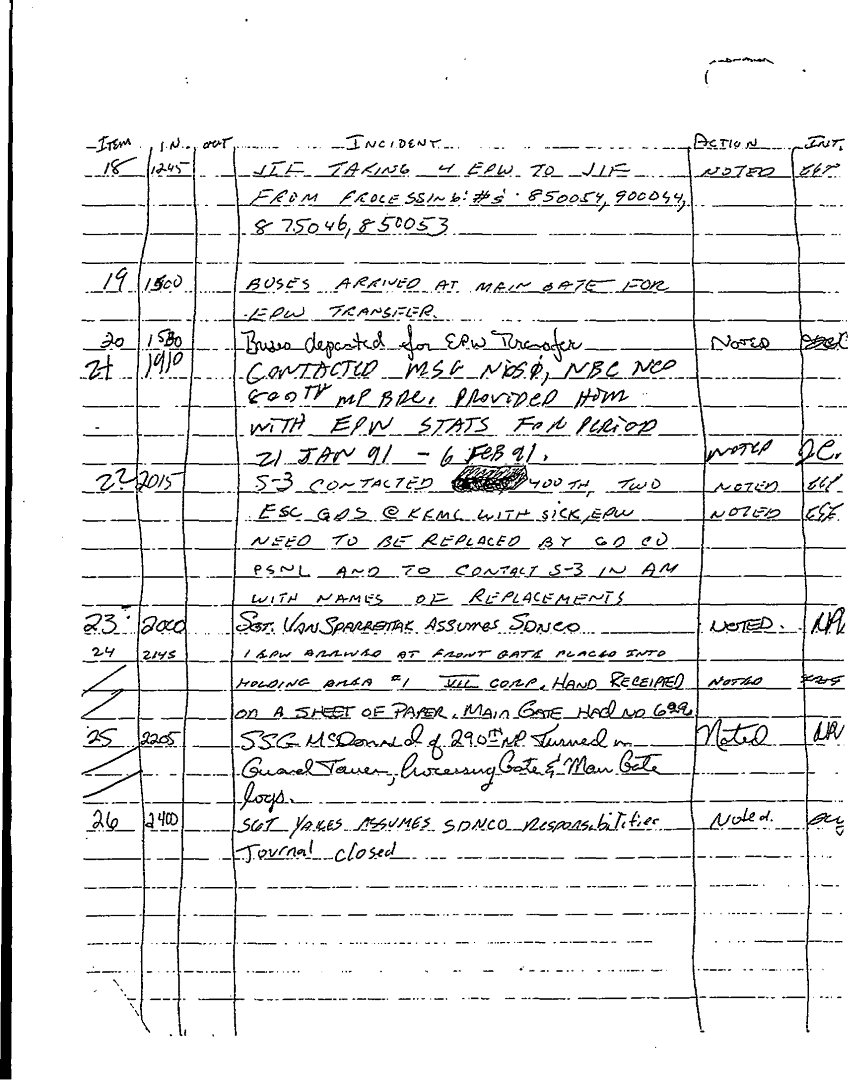 ITEM IN. OUT INCIDENT ACTION INT.
18 1245 JIF TAKING 4 EPW TO JIF NOTED
FROM PROCESSING: #S: 850054, 900044,
875046, 850053
19 1500 BUSES ARRIVED AT MAIN GATE FOR
EPW TRANSFER.
20 Buses departed for EPW Transfer NOTED
21 1910 CONTACTED MSG NBC NCO
800TH MP BDE. PROVIDED HIM
WITH EPW STATS FOR PERIOD
21 JAN 91 - 6 FEB 91. NOTED JC.
22 2015 S-3 CONTACTED 400TH, TWO NOTED
ESC GDS @ KKMC WITH SICK EPW NOTED
NEED TO BE REPLACED BY GD CO
PSNL AND TO CONTACT S-3 IN AM
WITH NAMES OF REPLACEMENTS
23 2000 SGT. VANSPARRENTAK ASSUMES SDNCO NOTED.
24 2145 1 EPW ARRIVED AT FRONT GATE PLACED INTO
HOLDING AREA #1 VII CORP. HAND RECEIPTED NOTED
ON A SHEET OF PAPER. MAIN GATE HAD NO
25 2205 SSG McDonnald of 290th MP Turned in Noted
Guard Tower, Processing Gate & Main Gate
logs.
26 2400 SGT YAKES ASSUMES SDNCO Responsibilities Noted.
Journal closed